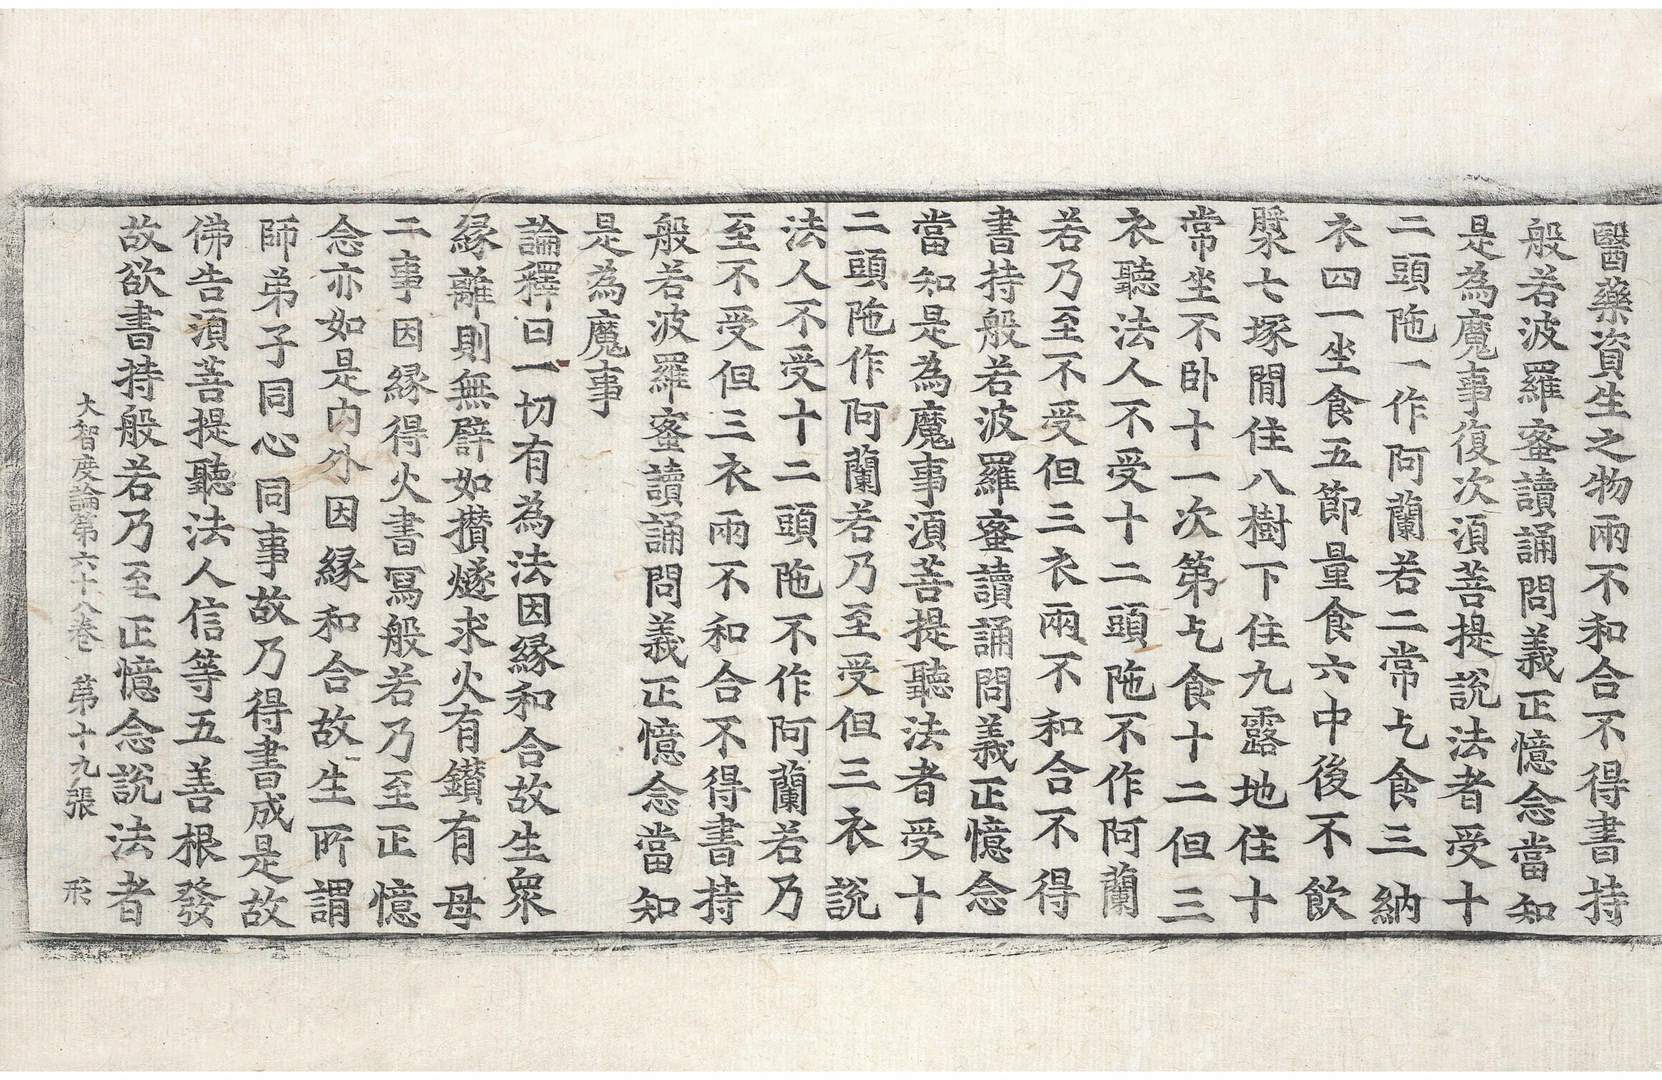 醫藥資生之物兩不和合不得書持
般若波羅蜜讀誦問義正憶念當知
是為魔事復次湏菩提說法者受十
二頭陁一作阿蘭若二常乞食三納
衣四一坐食五節量食六中後不飲
漿七塚閒住八樹下住九露地住十
常坐不卧十一次第乞食十二但三
衣聽法人不受十二頭陁不作阿蘭
若乃至不受但三衣兩不和合不得
書持般若波羅蜜讀誦問義正憶念
當知是為魔事湏菩提聽法者受十
二頭陁作阿蘭若乃至受但三衣說
法人不受十二頭陁不作阿蘭若乃
至不受但三衣兩不和合不得書持
般若波羅蜜讀誦問義正憶念當知
是為魔事
論釋曰一切有為法因緣和合故生衆
緣離則無譬如攢燧求火有鑚有母
二事因緣得火書寫般若乃至正憶
念亦如是内外因緣和合故生所謂
師弟子同心同事故乃得書成是故
佛告湏菩提聽法人信等五善根發
故欲書持般若乃至正憶念說法者
大智度論第六十八卷 第十九張 形